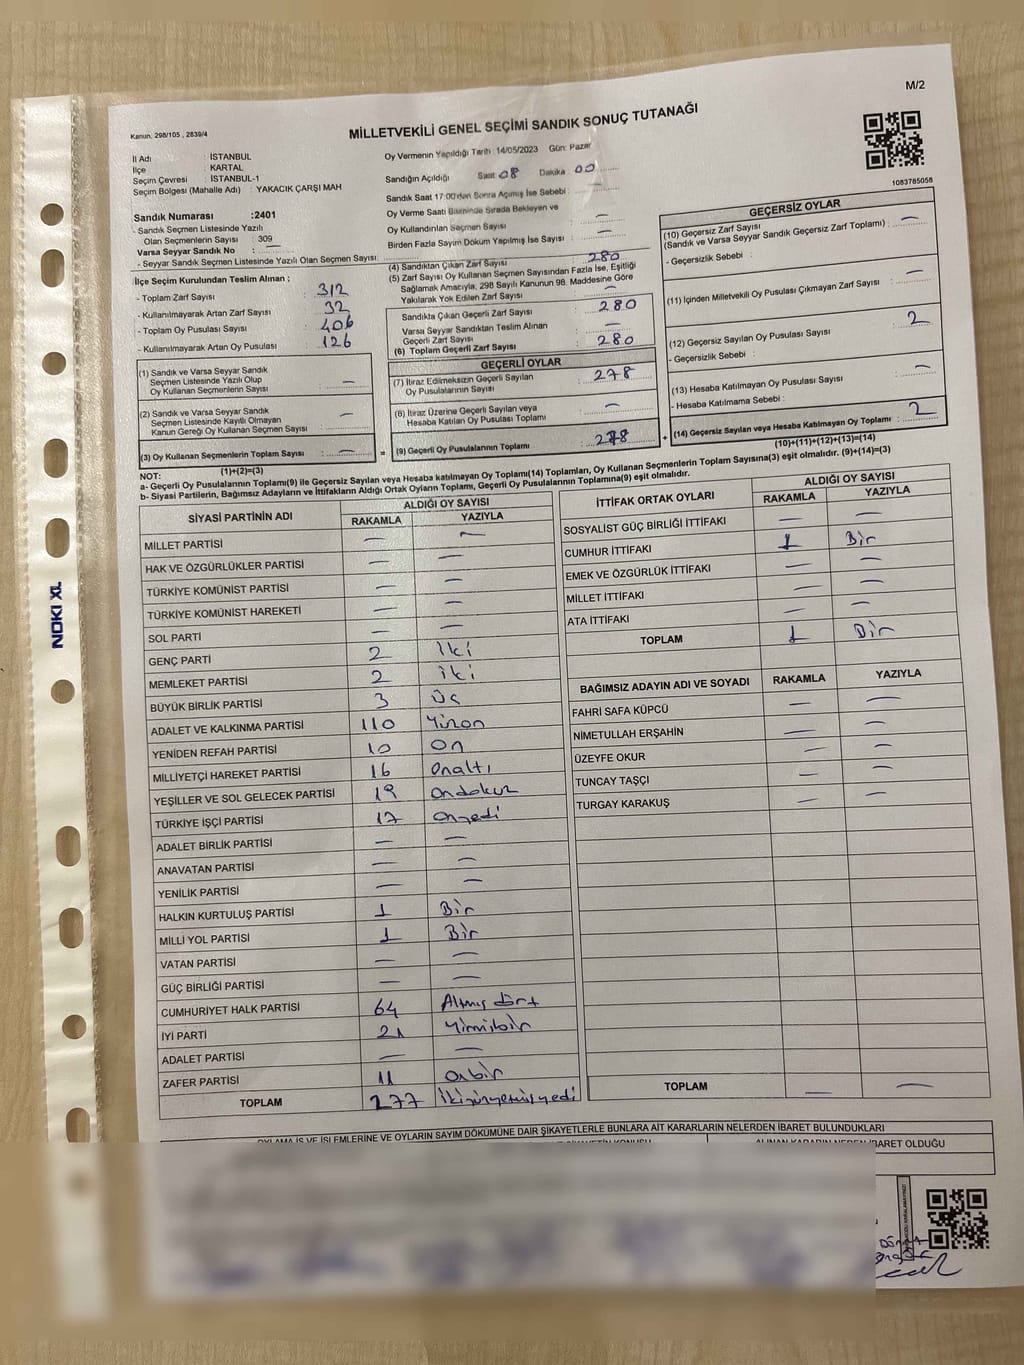 M/2
Kanun, 298/105 , 2839/4
MİLLETVEKİLİ GENEL SEÇİMİ SANDIK SONUÇ TUTANAĞI
İl Adı : İSTANBUL
İlçe : KARTAL
Seçim Çevresi : İSTANBUL-1
Seçim Bölgesi (Mahalle Adı) : YAKACIK ÇARŞI MAH
Sandık Numarası :2401
- Sandık Seçmen Listesinde Yazılı
Olan Seçmenlerin Sayısı : 309
Varsa Seyyar Sandık No :
- Seyyar Sandık Seçmen Listesinde Yazılı Olan Seçmen Sayısı:
Oy Vermenin Yapıldığı Tarih :14/05/2023 Gün: Pazar
Sandığın Açıldığı Saat: 08 Dakika: 00
Sandık Saat 17:00'den Sonra Açılmış İse Sebebi : —
Oy Verme Saati Bitiminde Sırada Bekleyen ve
Oy Kullandırılan Seçmen Sayısı : —
Birden Fazla Sayım Döküm Yapılmış İse Sayısı : —
1083785058
İlçe Seçim Kurulundan Teslim Alınan ;
- Toplam Zarf Sayısı : 312
- Kullanılmayarak Artan Zarf Sayısı : 32
- Toplam Oy Pusulası Sayısı : 406
- Kullanılmayarak Artan Oy Pusulası : 126
(1) Sandık ve Varsa Seyyar Sandık
Seçmen Listesinde Yazılı Olup
Oy Kullanan Seçmenlerin Sayısı : —
(2) Sandık ve Varsa Seyyar Sandık
Seçmen Listesinde Kayıtlı Olmayan
Kanun Gereği Oy Kullanan Seçmen Sayısı : —
(3) Oy Kullanan Seçmenlerin Toplam Sayısı : —
(1)+(2)=(3)
(4) Sandıktan Çıkan Zarf Sayısı : 280
(5) Zarf Sayısı Oy Kullanan Seçmen Sayısından Fazla İse, Eşitliği
Sağlamak Amacıyla, 298 Sayılı Kanunun 98. Maddesine Göre
Yakılarak Yok Edilen Zarf Sayısı : —
Sandıkta Çıkan Geçerli Zarf Sayısı : 280
Varsa Seyyar Sandıktan Teslim Alınan
Geçerli Zarf Sayısı : —
(6) Toplam Geçerli Zarf Sayısı : 280
GEÇERLİ OYLAR
(7) İtiraz Edilmeksizin Geçerli Sayılan
Oy Pusulalarının Sayısı : 278
(8) İtiraz Üzerine Geçerli Sayılan veya
Hesaba Katılan Oy Pusulası Toplamı : —
= (9) Geçerli Oy Pusulalarının Toplamı : 278 +
GEÇERSİZ OYLAR
(10) Geçersiz Zarf Sayısı
(Sandık ve Varsa Seyyar Sandık Geçersiz Zarf Toplamı) : —
- Geçersizlik Sebebi :
(11) İçinden Milletvekili Oy Pusulası Çıkmayan Zarf Sayısı : —
(12) Geçersiz Sayılan Oy Pusulası Sayısı : 2
- Geçersizlik Sebebi :
(13) Hesaba Katılmayan Oy Pusulası Sayısı : —
- Hesaba Katılmama Sebebi :
(14) Geçersiz Sayılan veya Hesaba Katılmayan Oy Toplamı : 2
(10)+(11)+(12)+(13)=(14)
NOT:
a- Geçerli Oy Pusulalarının Toplamı(9) ile Geçersiz Sayılan veya Hesaba katılmayan Oy Toplamı(14) Toplamları, Oy Kullanan Seçmenlerin Toplam Sayısına(3) eşit olmalıdır. (9)+(14)=(3)
b- Siyasi Partilerin, Bağımsız Adayların ve İttifakların Aldığı Ortak Oyların Toplamı, Geçerli Oy Pusulalarının Toplamına(9) eşit olmalıdır.
SİYASİ PARTİNİN ADI ALDIĞI OY SAYISI
RAKAMLA YAZIYLA
MİLLET PARTİSİ — —
HAK VE ÖZGÜRLÜKLER PARTİSİ — —
TÜRKİYE KOMÜNİST PARTİSİ — —
TÜRKİYE KOMÜNİST HAREKETİ — —
SOL PARTİ — —
GENÇ PARTİ 2 İki
MEMLEKET PARTİSİ 2 iki
BÜYÜK BİRLİK PARTİSİ 3 Üç
ADALET VE KALKINMA PARTİSİ 110 Yüzon
YENİDEN REFAH PARTİSİ 10 On
MİLLİYETÇİ HAREKET PARTİSİ 16 Onaltı
YEŞİLLER VE SOL GELECEK PARTİSİ 19 Ondokuz
TÜRKİYE İŞÇİ PARTİSİ 17 Onyedi
ADALET BİRLİK PARTİSİ — —
ANAVATAN PARTİSİ — —
YENİLİK PARTİSİ — —
HALKIN KURTULUŞ PARTİSİ 1 Bir
MİLLİ YOL PARTİSİ 1 Bir
VATAN PARTİSİ — —
GÜÇ BİRLİĞİ PARTİSİ — —
CUMHURİYET HALK PARTİSİ 64 Altmış dört
İYİ PARTİ 21 Yirmibir
ADALET PARTİSİ — —
ZAFER PARTİSİ 11 Onbir
TOPLAM 277 İkiyüzyetmişyedi
İTTİFAK ORTAK OYLARI ALDIĞI OY SAYISI
RAKAMLA YAZIYLA
SOSYALİST GÜÇ BİRLİĞİ İTTİFAKI — —
CUMHUR İTTİFAKI 1 Bir
EMEK VE ÖZGÜRLÜK İTTİFAKI — —
MİLLET İTTİFAKI — —
ATA İTTİFAKI — —
TOPLAM 1 Bir
BAĞIMSIZ ADAYIN ADI VE SOYADI RAKAMLA YAZIYLA
FAHRİ SAFA KÜPCÜ — —
NİMETULLAH ERŞAHİN — —
ÜZEYFE OKUR — —
TUNCAY TAŞÇI — —
TURGAY KARAKUŞ — —
TOPLAM — —
OYLAMA İŞ VE İŞLEMLERİNE VE OYLARIN SAYIM DÖKÜMÜNE DAİR ŞİKAYETLERLE BUNLARA AİT KARARLARIN NELERDEN İBARET BULUNDUKLARI
ALINAN KARARIN NEDEN İBARET OLDUĞU
NOKI XL